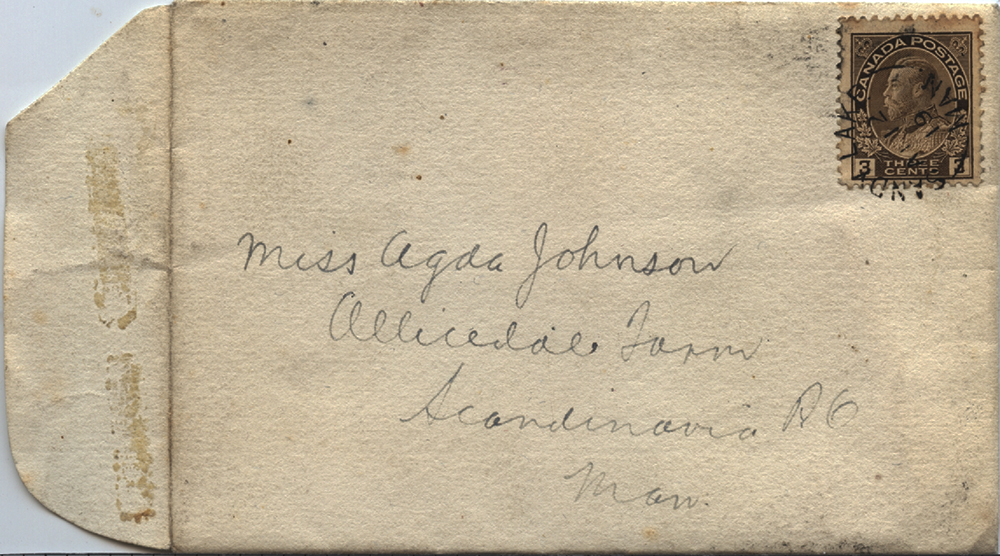 CANADA POSTAGE
3 THREE CENTS 3
LAKE
MAN
Miss Agda Johnson
Allicedale Farm
Scandinavia PO
Man.